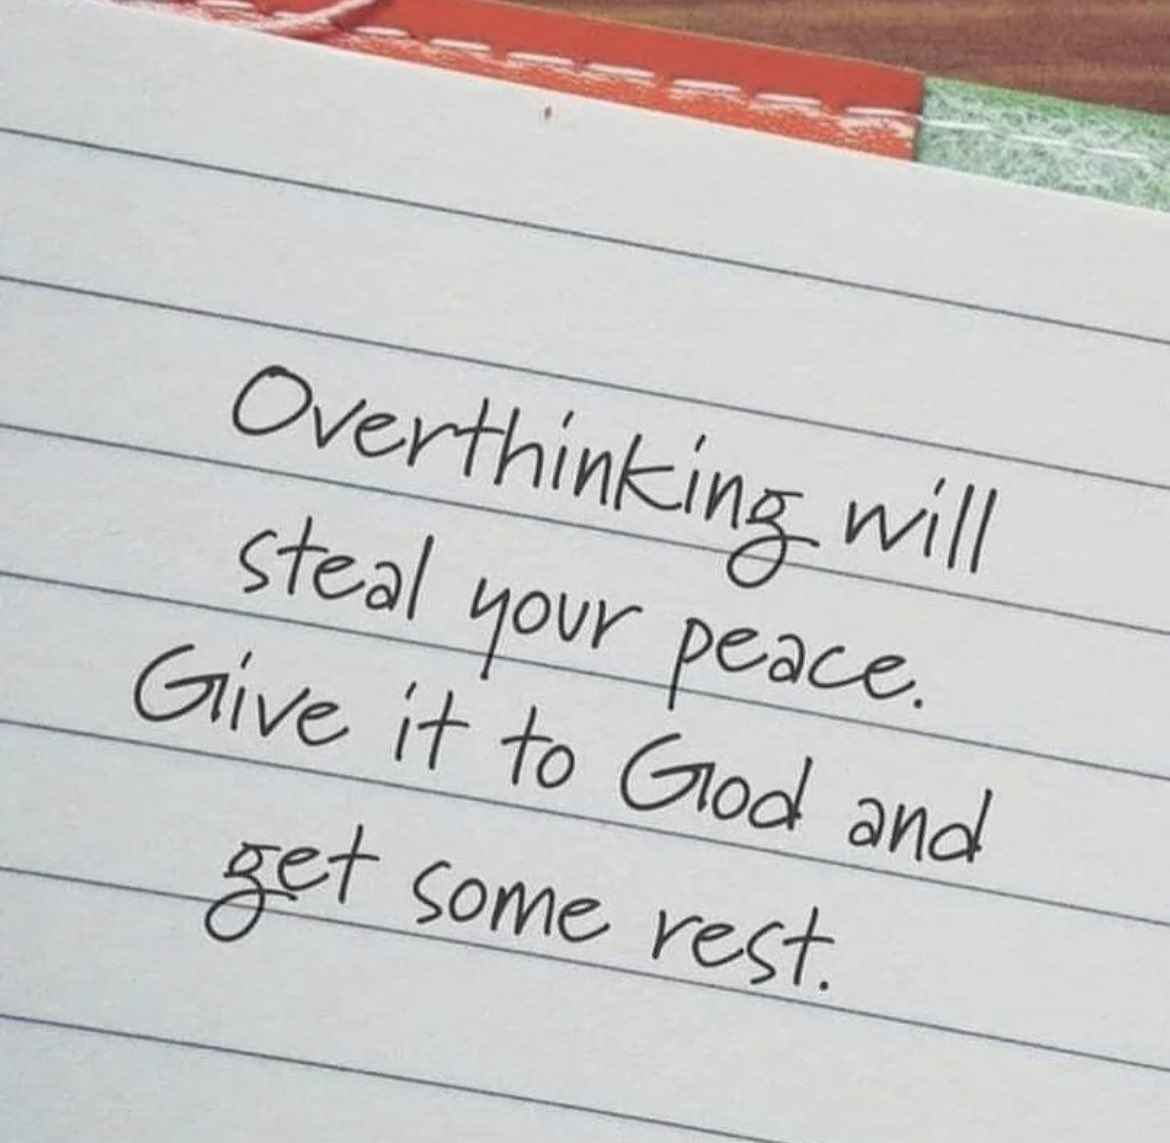 Overthinking will
steal your peace.
Give it to God and
get some rest.